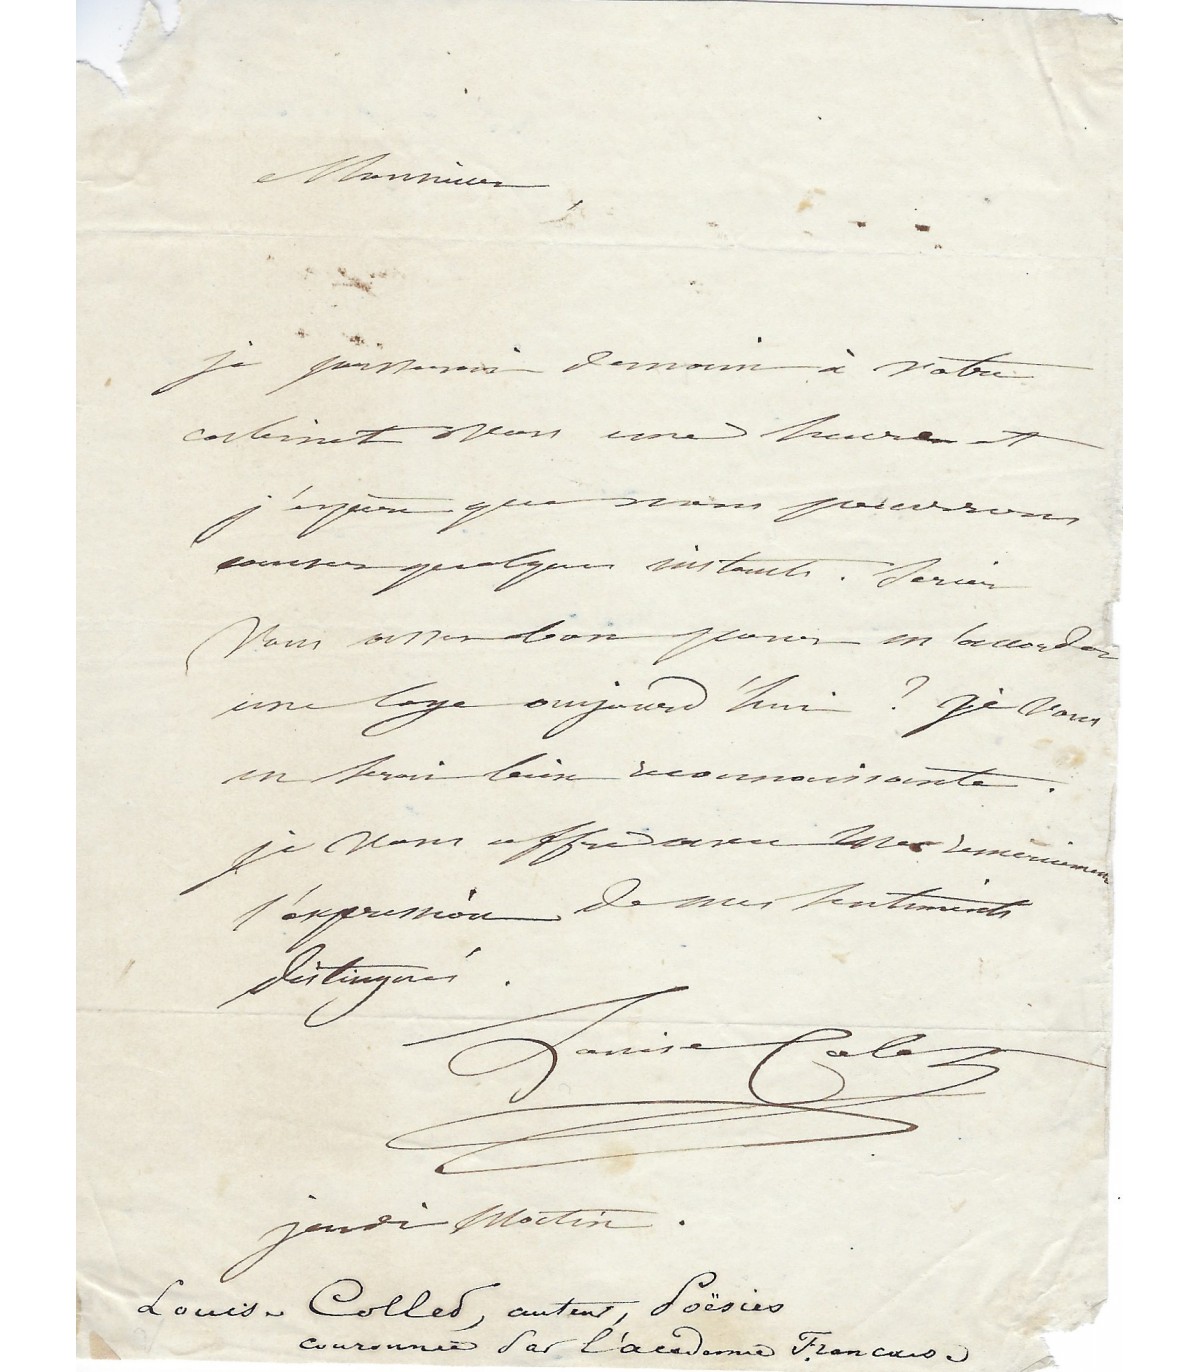 Monsieur,
je passerai demain à votre
cabinet vers une heure et
j'espère que nous pourrons
causer quelques instants. Seriez
vous assez bon pour m'accorder
une loge aujourd'hui ? je vous
en serai bien reconnaissante.
je vous offre avec mes remerciemens
l'expression de mes sentiments
distingués.
Louise Colet
jeudi matin.
Louise Colled, auteur, Poësies
couronnée par l'académie Française